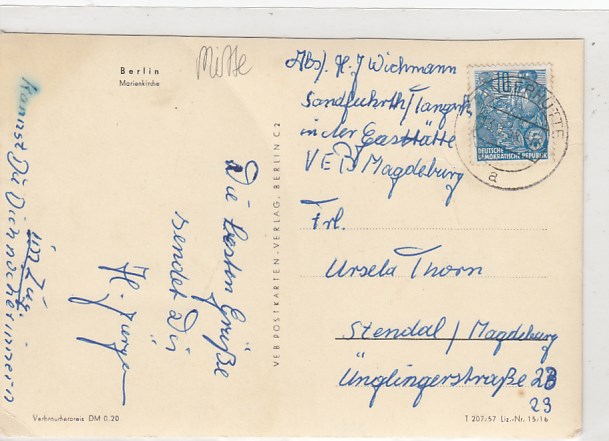 Berlin
Marienkirche
Mitte
Die besten Grüße
sendet Dir
H. Jürgen
Kannst Du Dich noch erinnern
im Zug.
VEB POSTKARTEN-VERLAG, BERLIN C2
Abs. H. J Wichmann
Sandfuhrth/Tangerh
in der Gaststätte
VEB Magdeburg
10
5
DEUTSCHE
DEMOKRATISCHE REPUBLIK
a
Frl.
Ursela Thorn
Stendal/Magdeburg
Ünglingerstraße 23
23
Verbraucherpreis DM 0,20
T 207/57 Liz.-Nr. 15/16